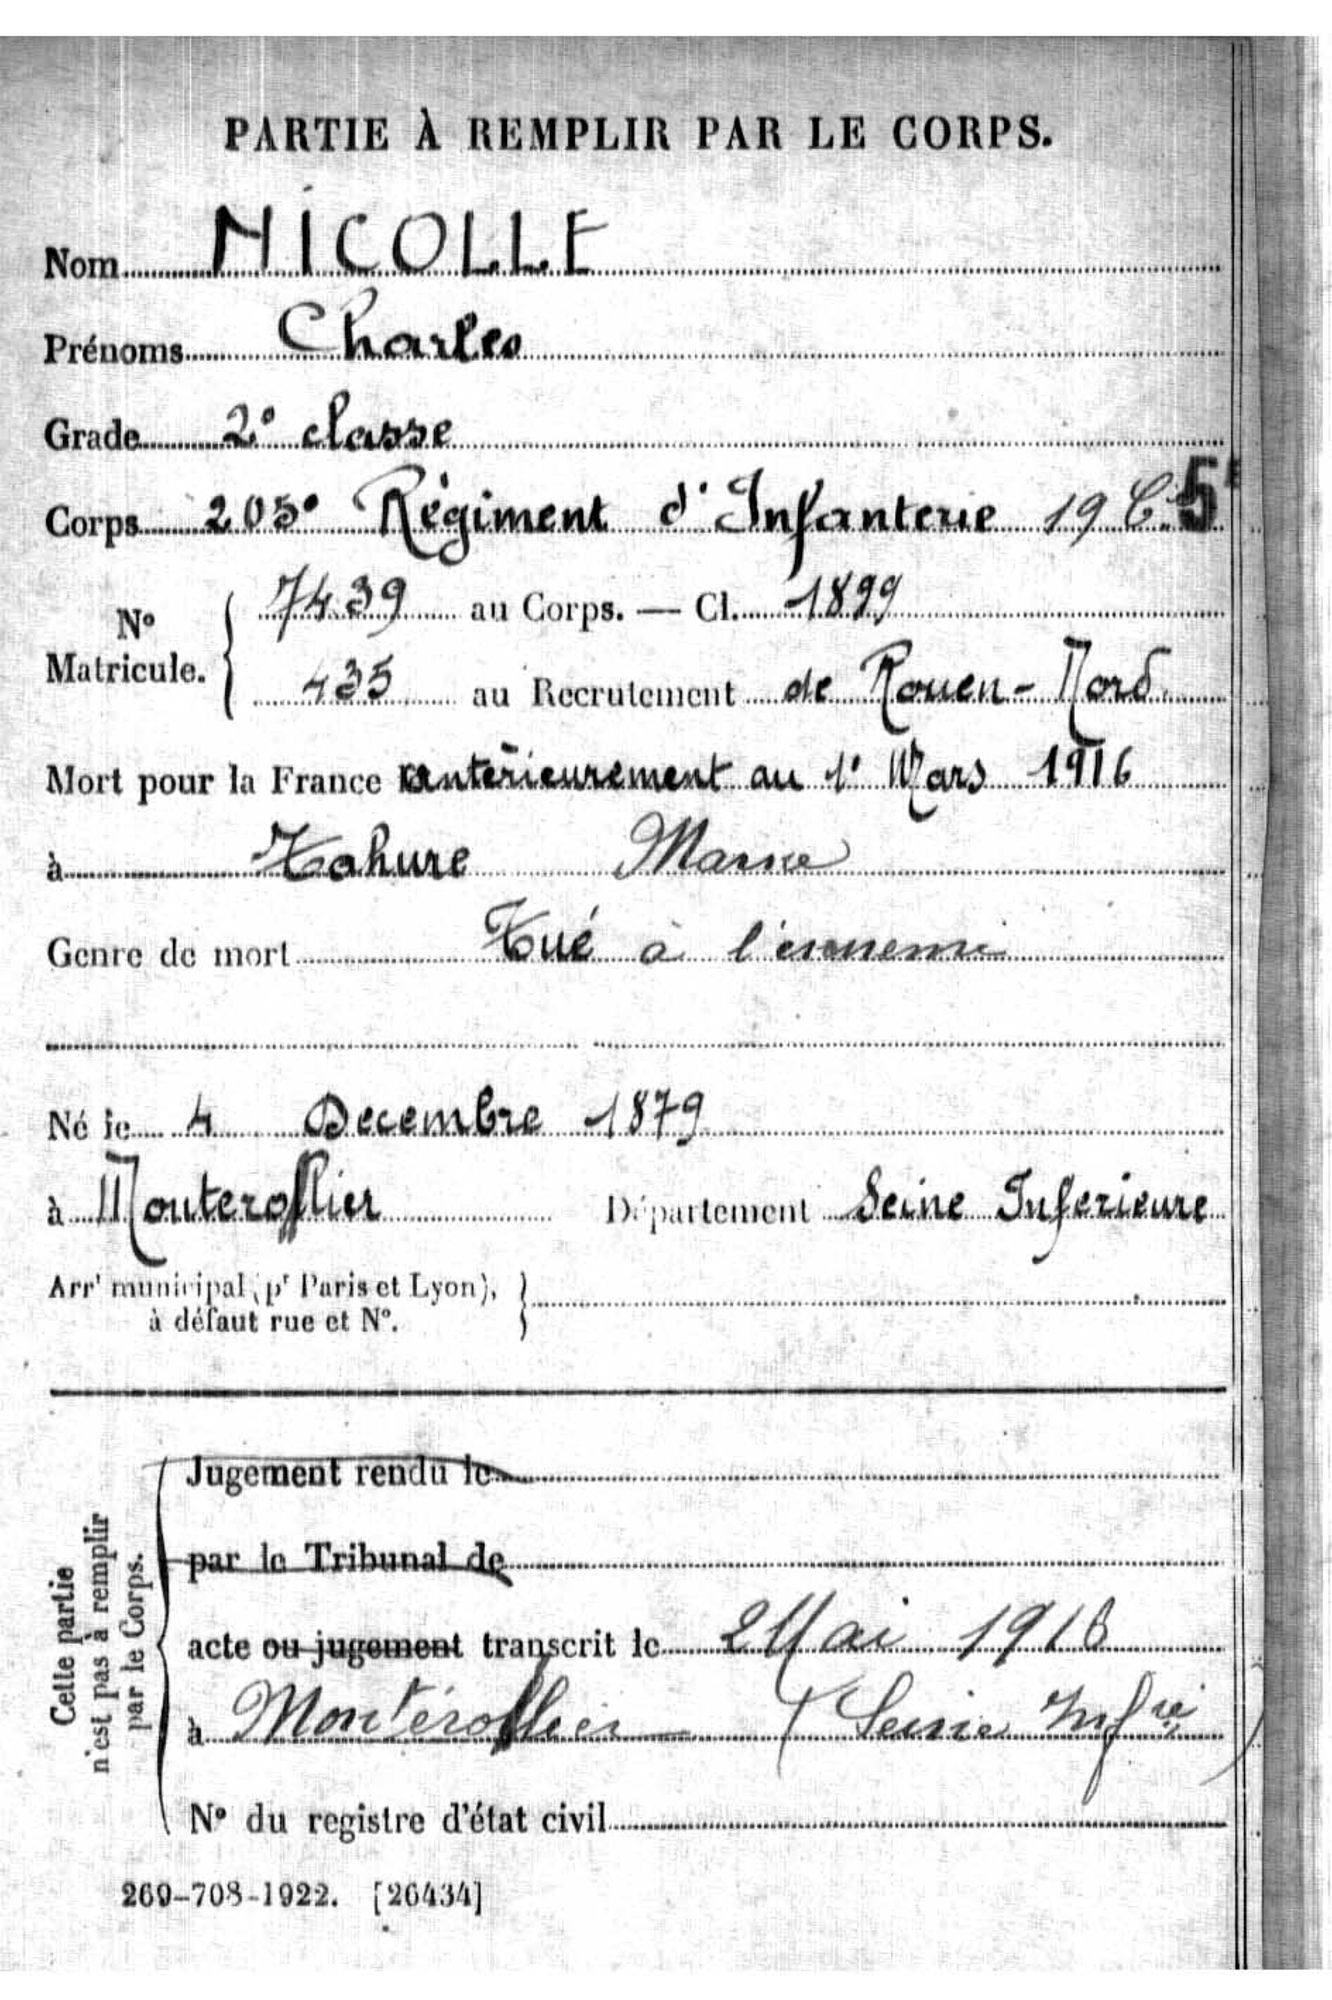 PARTIE À REMPLIR PAR LE CORPS.
Nom NICOLLE
Prénoms Charles
Grade 2e classe
Corps 205e Régiment d'Infanterie 19 C. 5
No Matricule. 7439 au Corps. — Cl. 1899
435 au Recrutement de Rouen-Nord
Mort pour la France antérieurement au 1er Mars 1916
à Tahure Marne
Genre de mort Tué à l'ennemi
Né le 4 Decembre 1879
à Monterollier Département Seine Inferieure
Arrt municipal (pr Paris et Lyon),
à défaut rue et No.
Jugement rendu le
par le Tribunal de
acte ou jugement transcrit le 2 Mai 1916
à Montérollier (Seine Infre)
No du registre d'état civil
Cette partie
n'est pas à remplir
par le Corps.
269-708-1922. [26434]